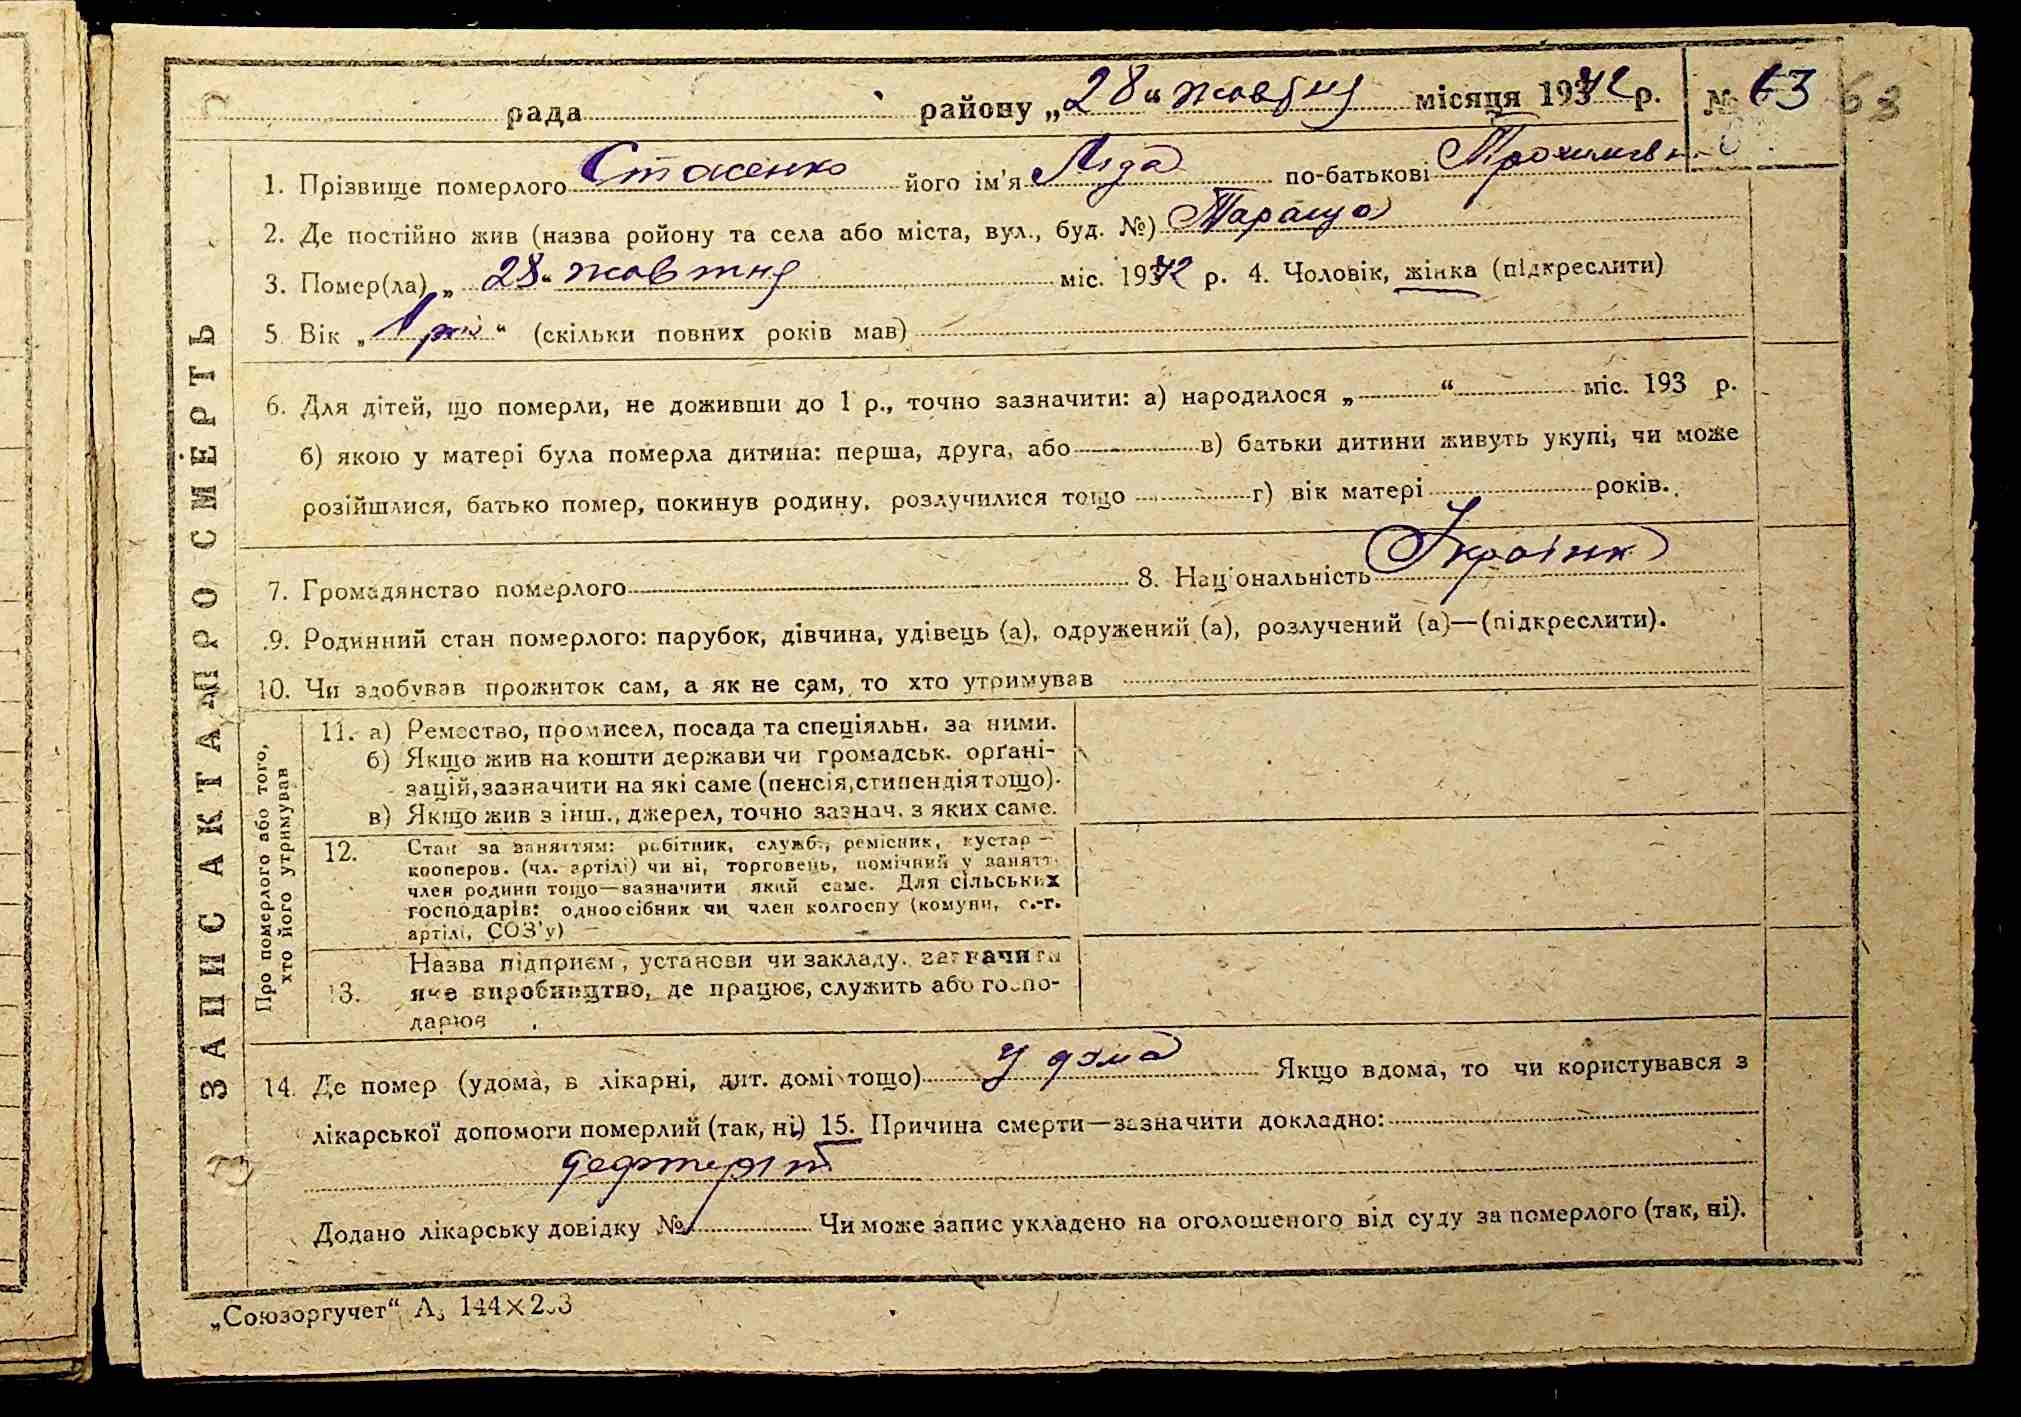 рада району „28“ жовтня місяця 1942 р. № 63 63
ЗАПИС АКТА ПРО СМЕРТЬ
1. Прізвище померлого Стасенко його ім'я Ліда по-батькові Трохимівн
2. Де постійно жив (назва ройону та села або міста, вул., буд. №) Тараща
3. Помер(ла) „28“ жовтня міс. 1942 р. 4. Чоловік, жінка (підкреслити)
5. Вік „1 рік“ (скільки повних років мав)
6. Для дітей, що померли, не доживши до 1 р., точно зазначити: а) народилося „ “ міс. 193 р.
б) якою у матері була померла дитина: перша, друга, або в) батьки дитини живуть укупі, чи може
розійшлися, батько помер, покинув родину, розлучилися тощо г) вік матері років.
7. Громадянство померлого 8. Національність Українк
9. Родинний стан померлого: парубок, дівчина, удівець (а), одружений (а), розлучений (а)—(підкреслити).
10. Чи здобував прожиток сам, а як не сам, то хто утримував
Про померлого або того,
хто його утримував
11. а) Ремество, промисел, посада та спеціяльн. за ними.
б) Якщо жив на кошти держави чи громадськ. орґані-
зацій, зазначити на які саме (пенсія, стипендія тощо).
в) Якщо жив з інш., джерел, точно зазнач. з яких саме.
12. Стан за заняттям: робітник, служб., ремісник, кустар —
кооперов. (чл. артілі) чи ні, торговець, помічний у занятт
член родини тощо—зазначити який саме. Для сільських
господарів: одноосібник чи член колгоспу (комуни, с.-г.
артілі, СОЗ'у)
13. Назва підприєм, установи чи закладу. зазначити
яке виробництво, де працює, служить або госпо-
дарює
14. Де помер (удома, в лікарні, дит. домі тощо) у дома Якщо вдома, то чи користувався з
лікарської допомоги померлий (так, ні) 15. Причина смерти—зазначити докладно:
дефтеріт
Додано лікарську довідку № Чи може запис укладено на оголошеного від суду за померлого (так, ні).
„Союзоргучет“ А₅ 144×203